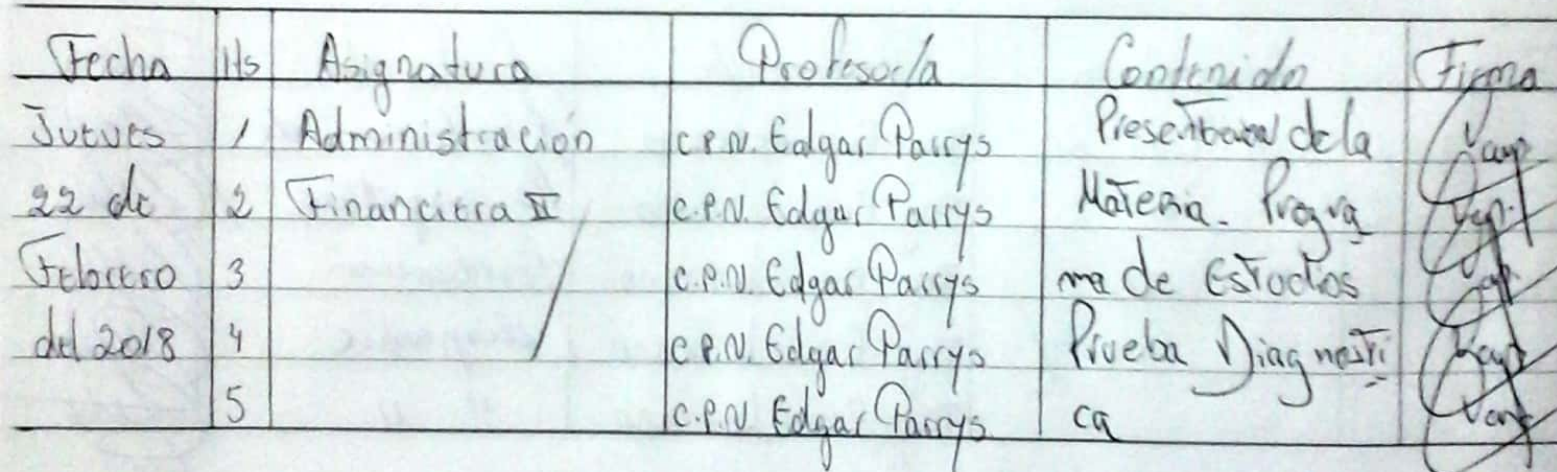 Fecha Hs Asignatura Profesor/a Contenido Firma
Jueves 1 Administración C.P.N. Edgar Parrys Presentación de la
22 de 2 Financiera II C.P.N. Edgar Parrys Materia. Progra
Febrero 3 C.P.N. Edgar Parrys ma de Estudios
del 2018 4 C.P.N. Edgar Parrys Prueba Diagnosti
5 C.P.N. Edgar Parrys ca